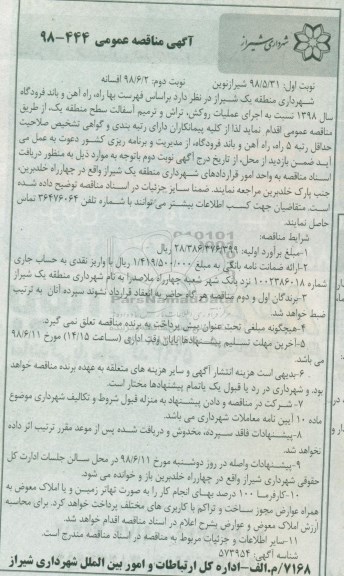 شهرداری شیراز
آگهی مناقصه عمومی ۴۴۴-۹۸
نوبت اول: ۹۸/۵/۳۱ شیرازنوین نوبت دوم: ۹۸/۶/۲ افسانه
شهرداری منطقه یک شیراز در نظر دارد براساس فهرست بها راه، راه آهن و باند فرودگاه
سال ۱۳۹۸ نسبت به اجرای عملیات روکش، تراش و ترمیم آسفالت سطح منطقه یک، از طریق
مناقصه عمومی اقدام نماید لذا از کلیه پیمانکاران دارای رتبه بندی و گواهی تشخیص صلاحیت
حداقل رتبه ۵ راه، راه آهن و باند فرودگاه، از مدیریت و برنامه ریزی کشور دعوت به عمل می
آید ضمن بازدید از محل، از تاریخ درج آگهی نوبت دوم باتوجه به موارد ذیل به منظور دریافت
اسناد مناقصه به واحد امور قراردادهای شهرداری منطقه یک شیراز واقع در چهارراه خلدبرین،
جنب پارک خلدبرین مراجعه نمایند. ضمنا سایز جزئیات در اسناد مناقصه توضیح داده شده
است. متقاضیان جهت کسب اطلاعات بیشتر می‌توانند با شماره تلفن ۳۶۴۷۶۰۶۴ تماس
حاصل نمایند.
شرایط مناقصه:
۱-مبلغ برآورد اولیه: ۲۸/۳۸۶/۴۷۶/۳۹۹ ریال
۲-ارائه ضمانت نامه بانکی به مبلغ ۱/۴۱۹/۵۰۰/۰۰۰ ریال یا واریز نقدی به حساب جاری
شماره ۱۰۰۲۳۸۶۰۱۸ نزد بانک شهر شعبه چهارراه ملاصدرا به نام شهرداری منطقه یک شیراز
۳-برندگان اول و دوم مناقصه هر گاه حاضر به انعقاد قرارداد نشوند سپرده آنان به ترتیب
ضبط خواهد شد.
۴-هیچگونه مبلغی تحت عنوان پیش پرداخت به برنده مناقصه تعلق نمی گیرد.
۵-آخرین مهلت تسلیم پیشنهادها پایان وقت اداری (ساعت ۱۴/۱۵) مورخ ۹۸/۶/۱۱
می باشد.
۶-بدیهی است هزینه انتشار آگهی و سایر هزینه های متعلقه به عهده برنده مناقصه خواهد
بود. و شهرداری در رد یا قبول یک یاتمام پیشنهادها مختار است.
۷-شرکت در مناقصه و دادن پیشنهاد به منزله قبول شروط و تکالیف شهرداری موضوع
ماده ۱۰ آیین نامه معاملات شهرداری می باشد.
۸-پیشنهادات فاقد سپرده، مخدوش و دریافت شده پس از موعد مقرر ترتیب اثر داده
نخواهد شد.
۹-پیشنهادات واصله در روز دوشنبه مورخ ۹۸/۶/۱۱ در محل سالن جلسات ادارت کل
حقوقی شهرداری شیراز واقع در چهارراه خلدبرین باز و خوانده می شود.
۱۰-کارفرما ۱۰۰ درصد بهای انجام کار را به صورت تهاتر زمین و یا املاک معوض به
همراه عوارض مجوز ساخت و تراکم با کاربری های مختلف پرداخت خواهد کرد. برای محاسبه
ارزش املاک معوض و عوارض بشرح اعلام در اسناد مناقصه اقدام خواهد شد.
۱۱-سایر اطلاعات و جزئیات مربوط به مناقصه در اسناد مناقصه مندرج است.
شناسه آگهی: ۵۷۳۹۵۴
۷۱۶۸/م.الف-اداره کل ارتباطات و امور بین الملل شهرداری شیراز